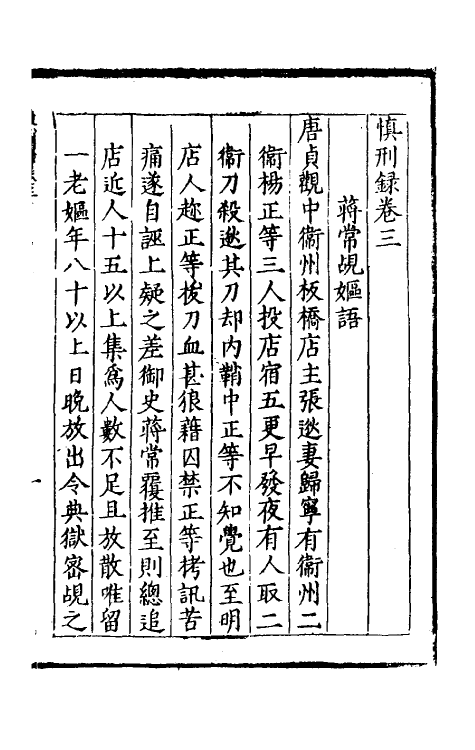 慎刑録卷三
蔣常覘嫗語
唐貞觀中衞州板橋店主張逖妻歸寧有衞州二
衞楊正等三人投店宿五更早發夜有人取二
衞刀殺逖其刀却内鞘中正等不知覺也至明
店人趂正等拔刀血甚狼藉囚禁正等拷訊苦
痛遂自誣上疑之差御史蔣常覆推至則總追
店近人十五以上集爲人數不足且放散唯留
一老嫗年八十以上日晚放出令典獄密覘之
一